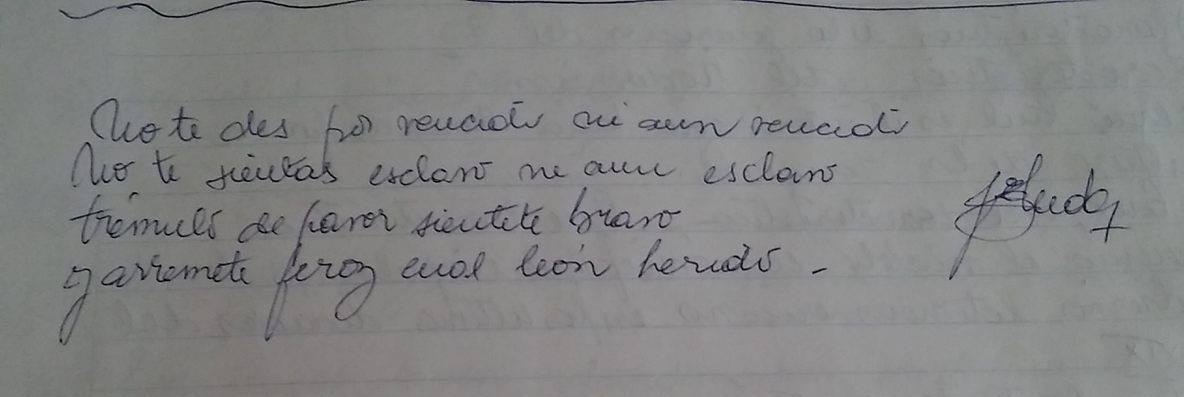 No te des por vencido ni aun vencido
No te sientas esclavo ni aun esclavo
trémulo de pavor sientete bravo
y arremete feroz cual león herido -